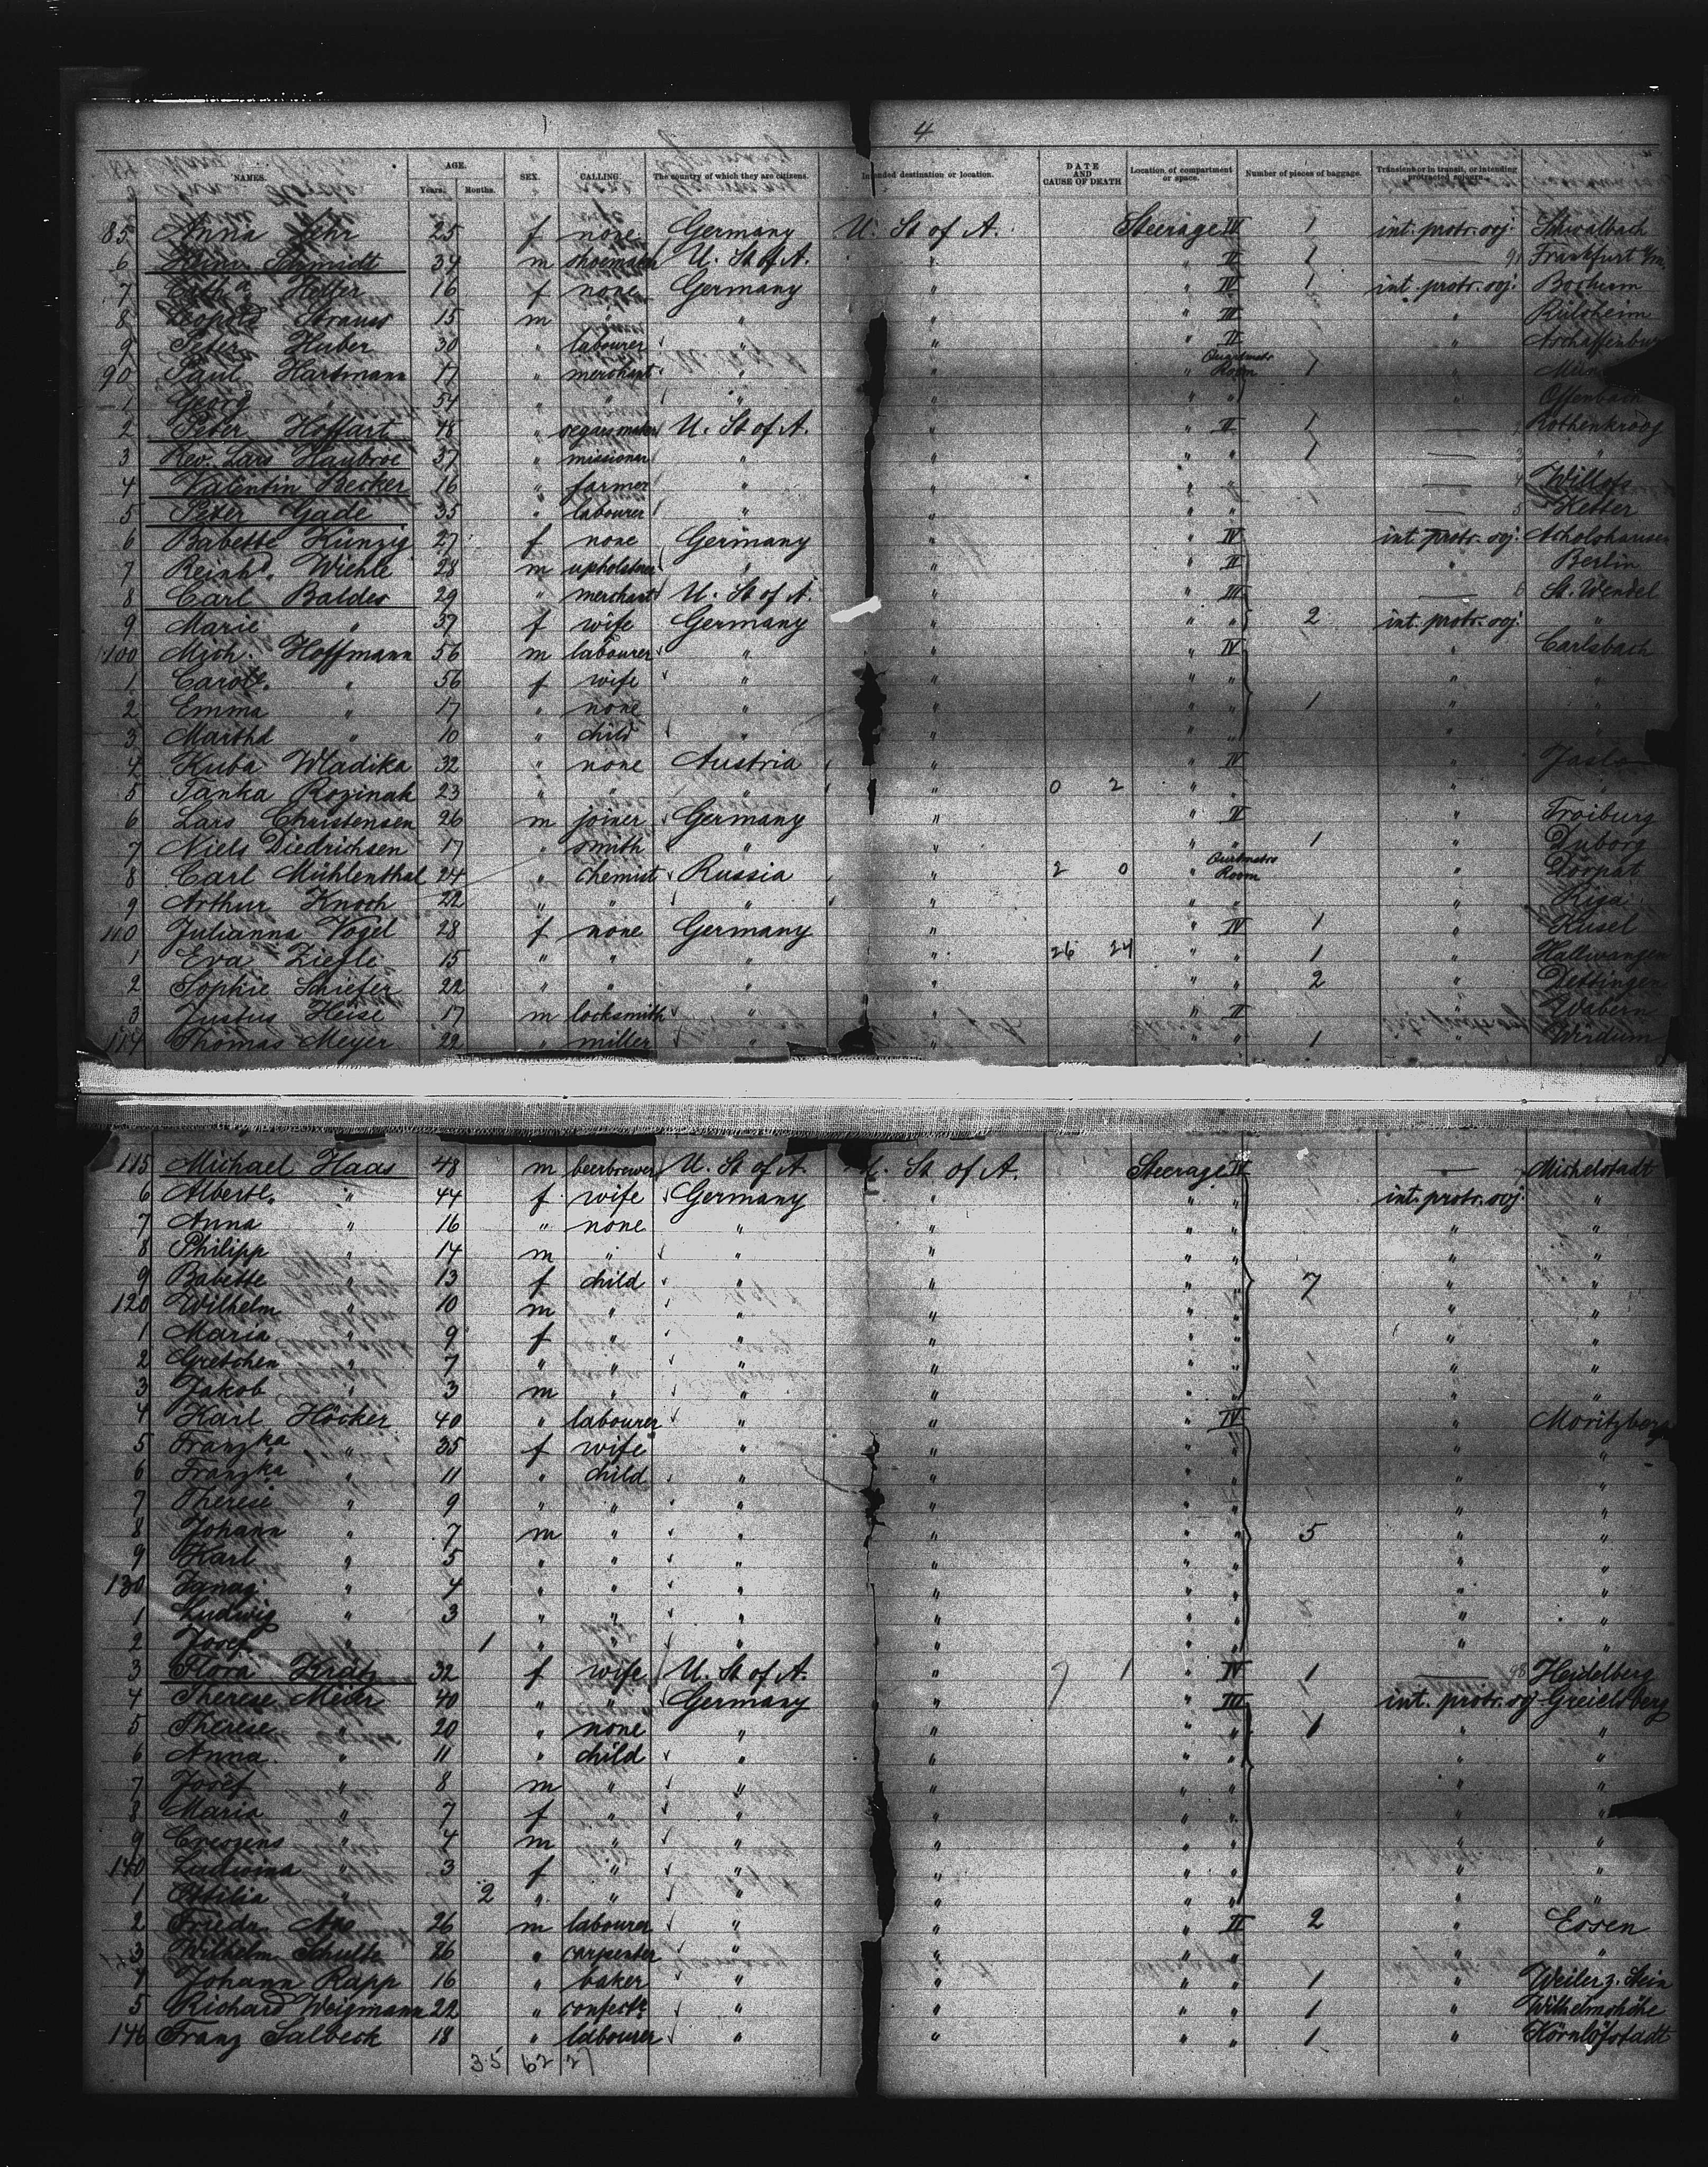 4
NAMES. AGE. Years. Months. SEX. CALLING. The country of which they are citizens. Intended destination or location. DATE AND CAUSE OF DEATH Location of compartment or space. Number of pieces of baggage. Transient or in transit, or intending protracted sojourn.
85 Anna 25 f none Germany U. St of A. Steerage IV 1 int. protr. soj. Schwalbach
6 Schmidt 34 m shoemaker U. St. of A. " " II 1 — Frankfurt a/m.
7 16 f none Germany " " IV 1 int. protr. soj. Bochum
8 Leopold Strauss 15 m " " " " III "
9 Peter Herber 30 " labourer " " " II " Aschaffenburg
90 Paul Hartmann 17 " merchant " " " Quartmstrs Room 1 "
1 Georg " 54 " " " " " " " Offenbach
2 Peter Hoffart 48 " segarmaker U. St. of A. " " II 1 —
3 Rev. Lars 37 " missioner " " " " 1 — "
4 Valentin Becker 16 " farmer " " " " —
5 Peter Gade 35 " labourer " " " " — Ketter
6 Babette Künzig 27 f none Germany " " IV int. protr. soj. Acholshausen
7 Reinhd. Wiehle 28 m upholsterer " " " II " Berlin
8 Carl Baldes 29 " merchant U. St. of A. " " III — St. Wendel
9 Marie " 37 f wife Germany " " " 2 int. protr. soj. "
100 Mich. Hoffmann 56 m labourer " " " IV " Carlsbach
1 Carole. " 56 f wife " " " " " "
2 Emma " 17 " none " " " " 1 " "
3 Martha " 10 " child " " " " " "
4 Kuba Wladika 32 " none Austria " " IV " Jaslo
5 Tanka Rozinak 23 " " " " 0 2 " " " "
6 Lars Christensen 26 m joiner Germany " " II " Troiburg
7 Niels Diedrichsen 17 " smith " " " " 1 " Duborg
8 Carl Mühlenthal 24 " chemist Russia " 2 0 " Quartmstrs Room " Dorpat
9 Arthur Knoch 22 " " " " " " " Riga
110 Julianna Vogel 28 f none Germany " " IV 1 " Kusel
1 Eva Ziefle 15 " " " " 26 24 " " 1 " Hallwangen
2 Sophie Schiefer 22 " " " " " " 2 " Dettingen
3 Justus Heise 17 m locksmith " " " II " Wabern
114 Thomas Meyer 22 " miller " " " " 1 " Wirdum
115 Michael Haas 48 m beerbrewer U. St of A. U. St. of A. Steerage IV — Michelstadt
6 Albertē. " 44 f wife Germany " " " int. protr. soj. "
7 Anna " 16 " none " " " " " "
8 Philipp " 14 m " " " " " " "
9 Babette " 13 f child " " " " 7 " "
120 Wilhelm " 10 m " " " " " " "
1 Maria " 9 f " " " " " " "
2 Gretchen " 7 " " " " " " " "
3 Jakob " 3 m " " " " " " "
4 Karl Höcker 40 " labourer " " " IV " Moritzberg
5 Franzka " 35 f wife " " " " " "
6 Franzka " 11 " child " " " " " "
7 Therese " 9 " " " " " " " "
8 Johann " 7 m " " " " " 5 " "
9 Karl " 5 " " " " " " " "
130 Ignaz " 4 " " " " " " " "
1 Ludwig " 3 " " " " " " " "
2 Josef " 1 " " " " " " " "
3 Flora Kratz 32 f wife U. St. of A. " 7 1 " IV 1 — Heidelberg
4 Therese Meier 40 " " Germany " " III int. protr. soj.
5 Therese " 20 " none " " " " 1 " "
6 Anna " 11 " child " " " " " "
7 Josef " 8 m " " " " " " "
8 Maria " 7 f " " " " " " "
9 Creszens " 4 m " " " " " " "
140 Ludwina " 3 f " " " " " " "
1 Ottilia " 2 " " " " " " " "
2 Friedr. 26 m labourer " " " II 2 " Essen
3 Wilhelm Schulte 26 " carpenter " " " " " "
4 Johann Rapp 16 " baker " " " " 1 " Weiler z. Stein
5 Richard Weigmann 22 " confectr. " " " " 1 " Wilhelmshöhe
146 Franz Salbeck 18 " labourer " " " " 1 "
35 62 27